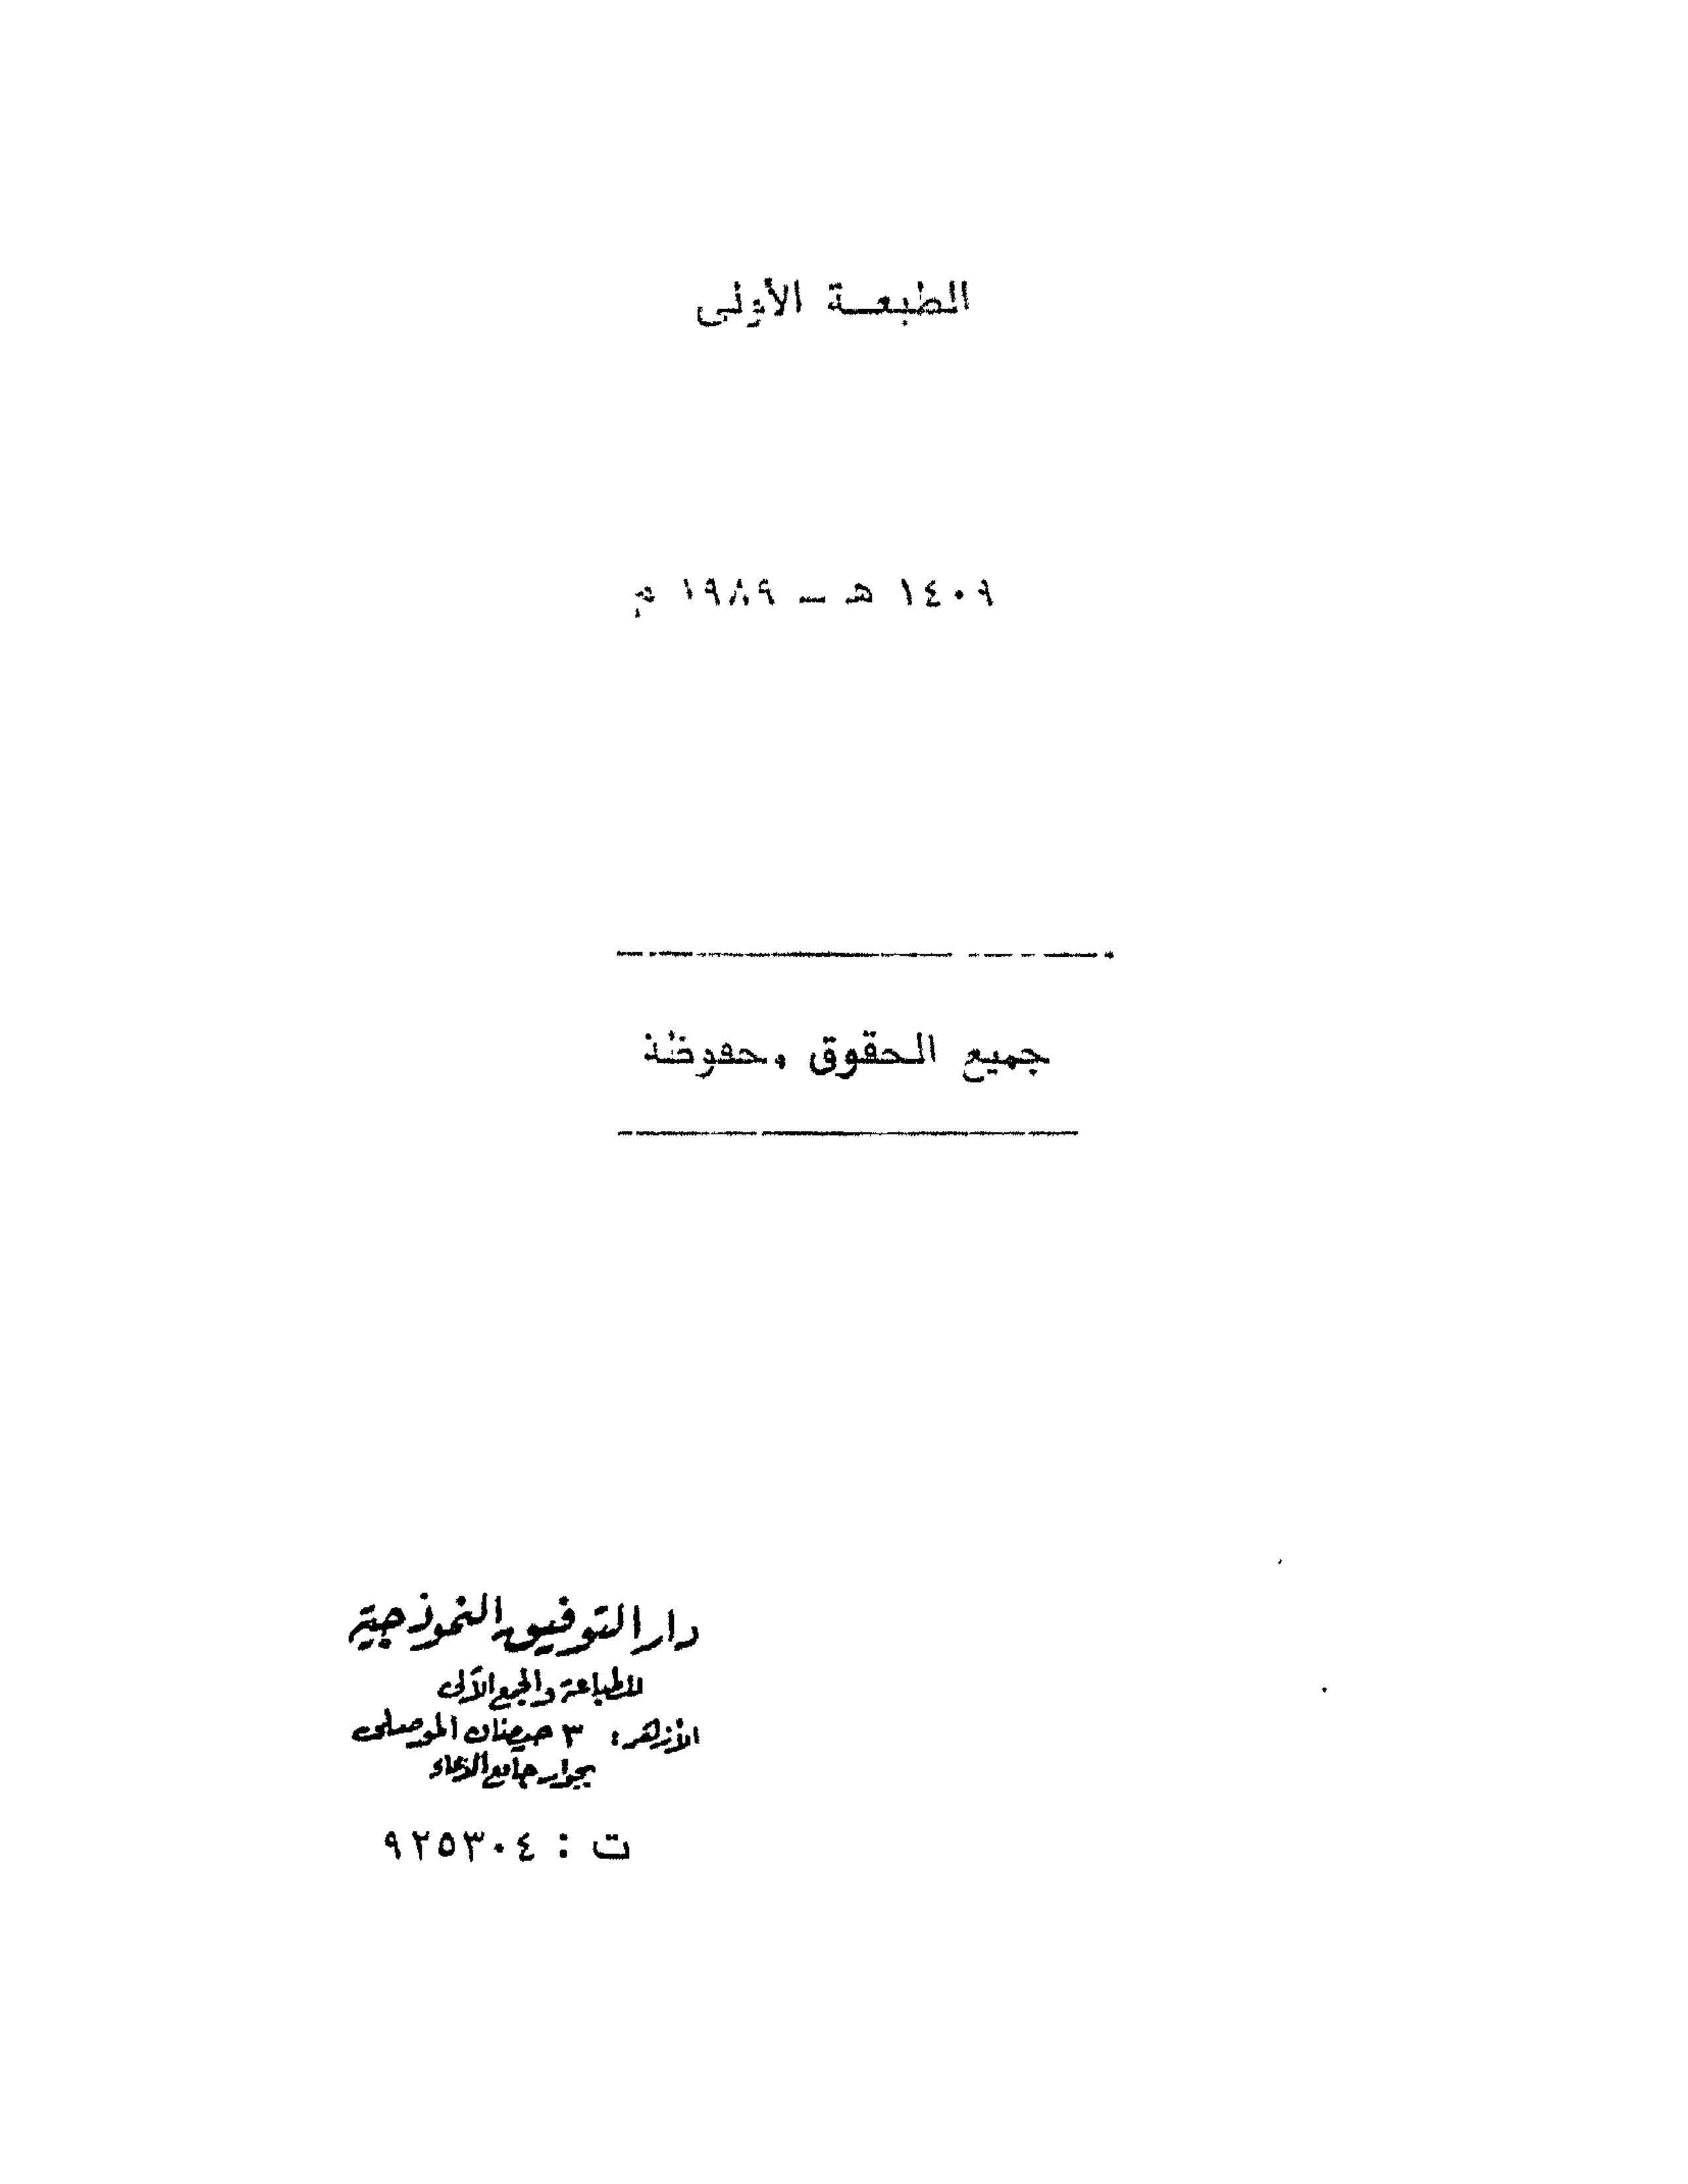 الطبعة الأولى
١٤٠٩ هـ – ١٩٨٩ م
جميع الحقوق محفوظة
دار التوفيق النموذجية
للطباعة والجمع الآلى
الأزهر: ٣ حيضان الموصلى
بجوار جامع الدعاء
ت : ٩٢٥٣٠٤